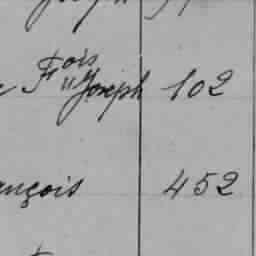 Fois Joseph 102
ançois 452